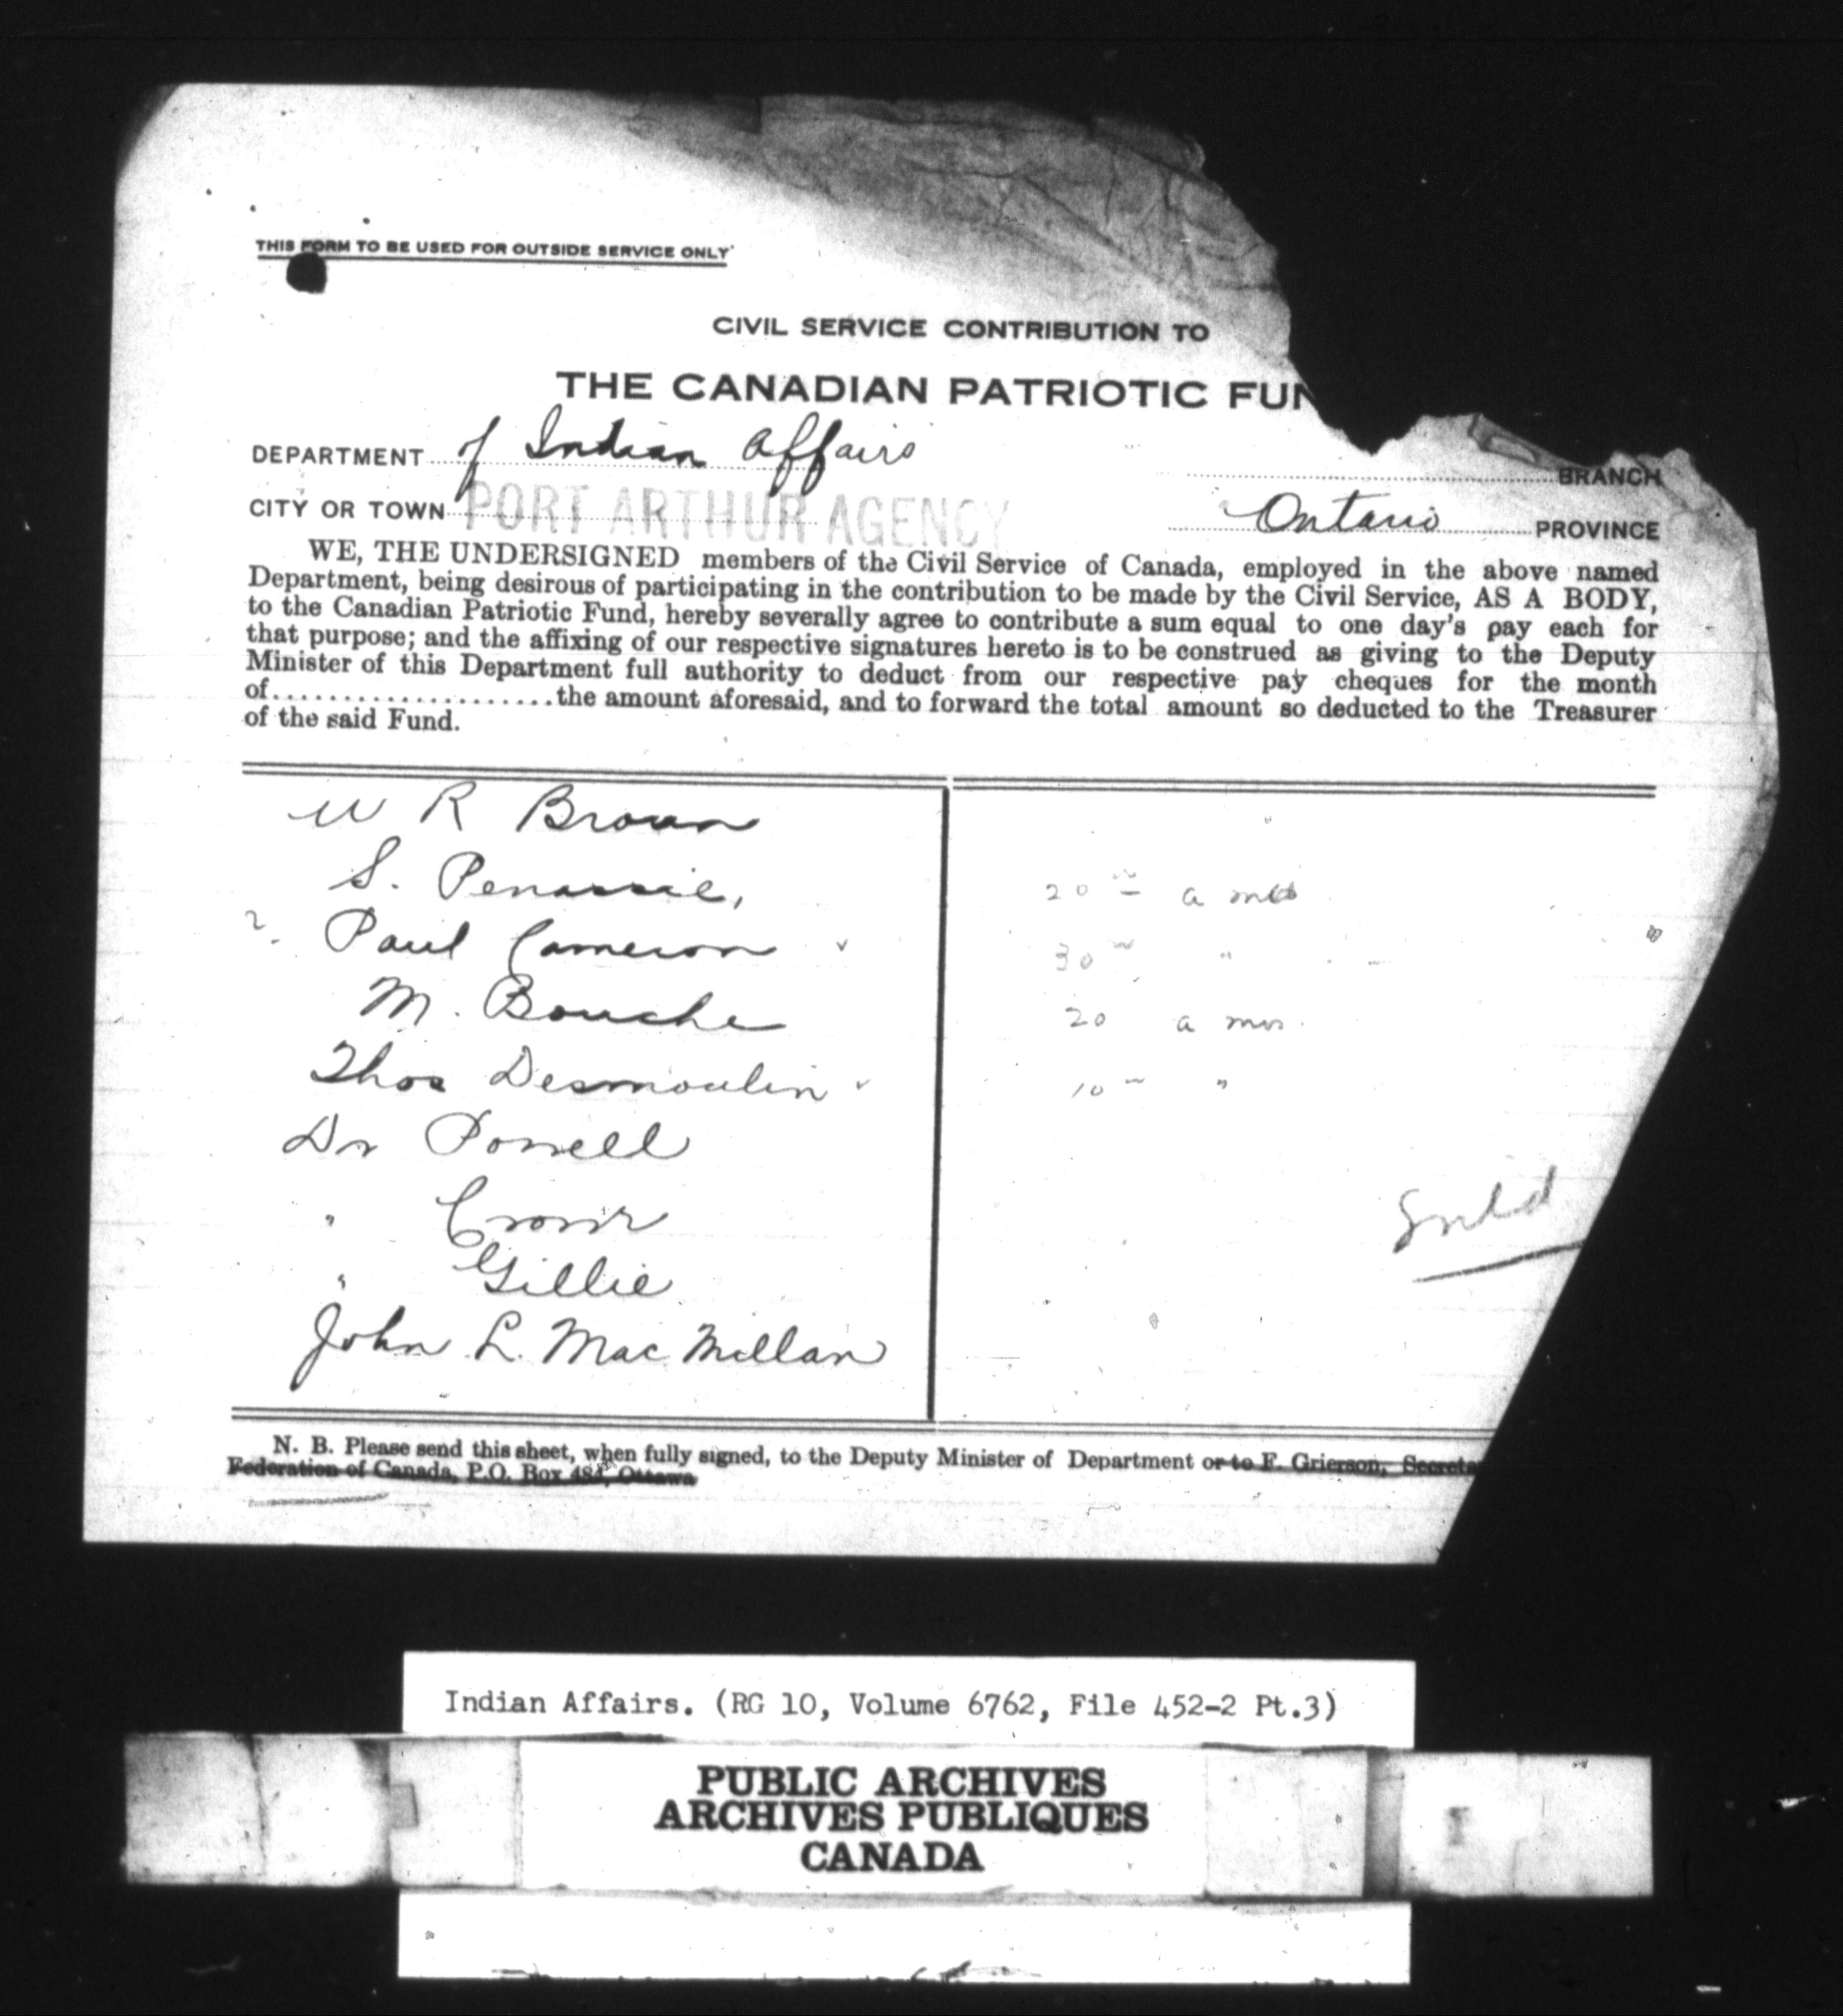 THIS FORM TO BE USED FOR OUTSIDE SERVICE ONLY
CIVIL SERVICE CONTRIBUTION TO
THE CANADIAN PATRIOTIC FUN
DEPARTMENT of Indian Affairs BRANCH
CITY OR TOWN PORT ARTHUR AGENCY Ontario PROVINCE
WE, THE UNDERSIGNED members of the Civil Service of Canada, employed in the above named
Department, being desirous of participating in the contribution to be made by the Civil Service, AS A BODY,
to the Canadian Patriotic Fund, hereby severally agree to contribute a sum equal to one day's pay each for
that purpose; and the affixing of our respective signatures hereto is to be construed as giving to the Deputy
Minister of this Department full authority to deduct from our respective pay cheques for the month
of....................the amount aforesaid, and to forward the total amount so deducted to the Treasurer
of the said Fund.
W R Brown
S. Penassie, 20 a
Paul Cameron 30 "
M. Bouche 20 a
Thos Desmoulin 10 "
Dr Powell
"
" Gillie
John L. MacMillan
N. B. Please send this sheet, when fully signed, to the Deputy Minister of Department or to F. Grierson, Secreta
Federation of Canada, P.O. Box 484, Ottawa
Indian Affairs. (RG 10, Volume 6762, File 452-2 Pt.3)
PUBLIC ARCHIVES
ARCHIVES PUBLIQUES
CANADA